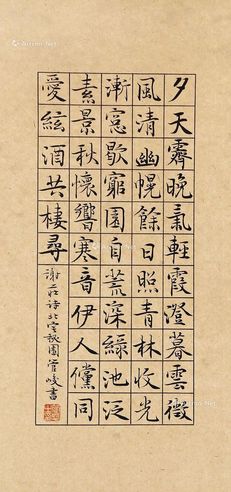 夕天霽晚氣輕霞澄暮雲微
風清幽幌餘日照青林收光
漸窻歇窮園自荒深綠池泛
素景秋懷響寒音伊人儻同
愛絃酒共棲尋
謝莊詩北宅秘園管峻書